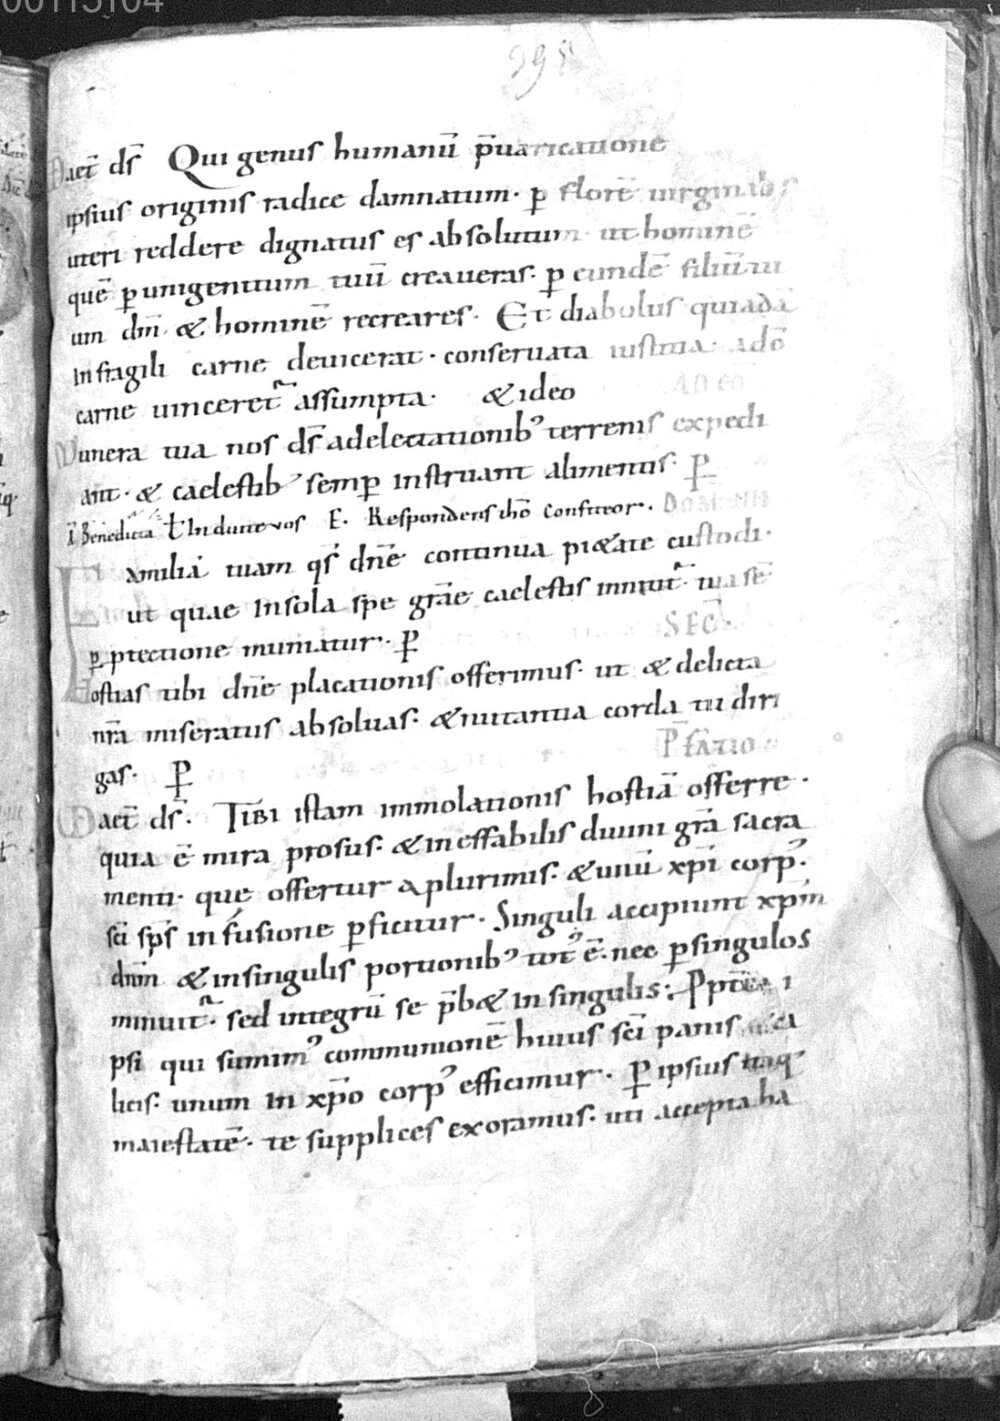 00115104
295
Daet̄ ds̄ Qui genus humanū p̄uaricatione
ipsius originis radice damnatum· ꝑ florē uirginalis
uteri reddere dignatus es absolutum ut hominē
quē ꝑ unigenitum tuū creaueras· ꝑ eundē filiū tu
um dm̄ & hominē recreares· Et diabolus quiadā
In fragili carne deuicerat· conseruata iustitia· adō
carne uinceret᷑ assumpta· & ideo AD CO
Munera tua nos ds̄ adelectationib᾽ terrenis expedi
ant· & caelestib᾽ semꝑ instruant alimentis· P̄
Benedicta Induite vos E. Respondens ihō Confiteor.
Familiā tuam qs̄ dn̄e continua pi&ate custodi·
ut quae Insola spe grāe caelestis innitit᷑ tua sē
ꝑ ptectione muniatur· P̄
SEC̄·
Hostias tibi dn̄e placationis offerimus· ut & delicta
nr̄a miseratus absoluas· & nutantia corda tu diri
gas· P̄
P̄FATIO
Daet̄ ds̄· Tibi istam immolationis hostiā offerre·
quia ē mira prosus· & ineffabilis diuini grā sacra
menti· que offertur aplurimis· & unū xpī corp᾽·
sc̄i sp̄s infusione ꝑficitur· Singuli accipiunt xpm̄
dnm̄ & insingulis portionib᾽ tot᾽ ē· nec ꝑsingulos
minuit᷑· sed integrū se p̄b& in singulis; Ppt̄ea i
psi qui sumim᾽ communionē huius sc̄i panis
licis· unum in xp̄o corp᾽ efficimur· ꝑ ipsius itaq᾽
maiestatē· te supplices exoramus· uti accepta ha